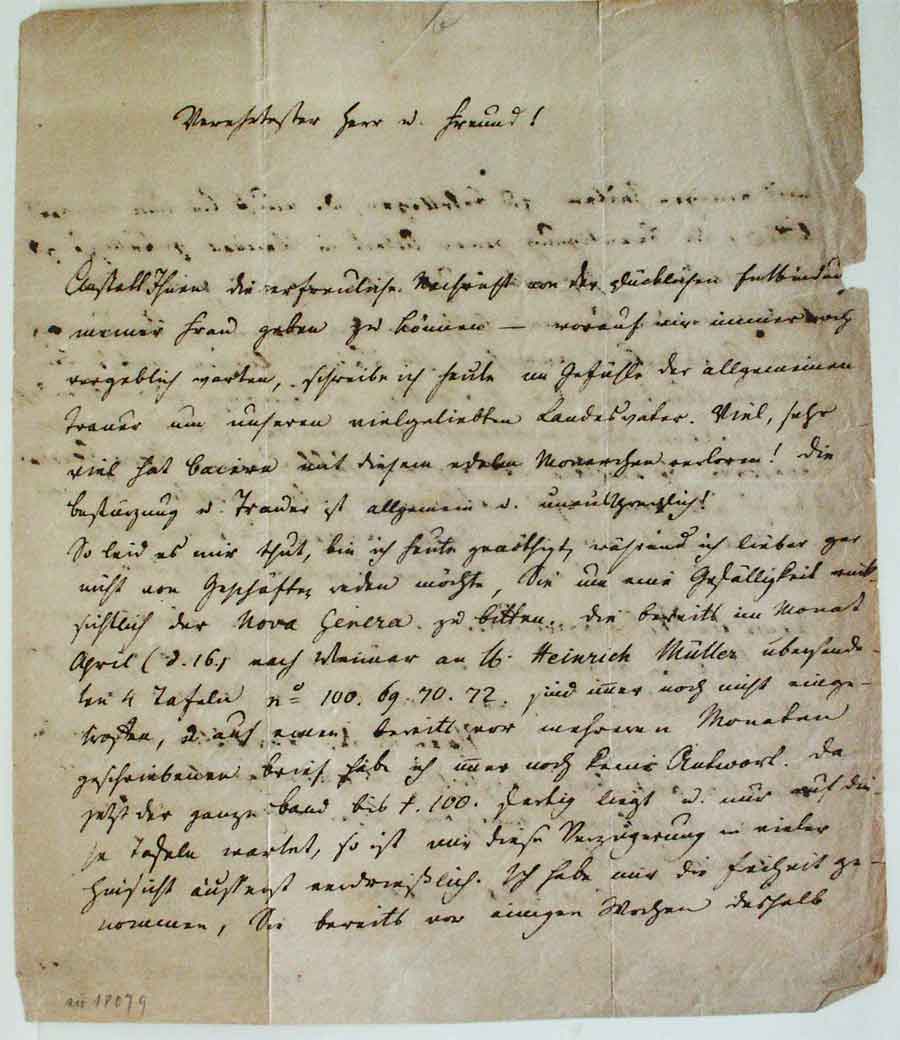 Verehrtester Herr u. Freund!
Anstatt Ihnen die erfreuliche Nachricht von der glücklichen Entbindung
meiner Frau geben zu können — worauf wir immer noch
vergeblich warten, schreibe ich heute im Gefühle der allgemeinen
Trauer um unseren vielgeliebten Landesvater. Viel, sehr
viel hat Baiern mit diesem edelen Monarchen verloren! Die
Bestürzung u. Trauer ist allgemein u. unaussprechlich!
So leid es mir thut, bin ich heute genöthigt, während ich lieber gar
nicht von Geschäften reden möchte, Sie um eine Gefälligkeit rück-
sichtlich der Nova Genera zu bitten. Die bereits im Monat
April (d. 16.) nach Weimar an H. Heinrich Müller übersende-
ten 4 Tafeln nº 100. 69. 70. 72. sind immer noch nicht einge-
troffen, u. auf einen bereits vor mehreren Monaten
geschriebenen Brief habe ich immer noch keine Antwort. Da
jetzt der ganze Band bis t. 100. fertig liegt u. nur auf die-
se Tafeln wartet, so ist mir diese Verzögerung in vieler
Hinsicht äusserst verdriesslich. Ich habe mir die Freiheit ge-
nommen, Sie bereits vor einigen Wochen desshalb
18079